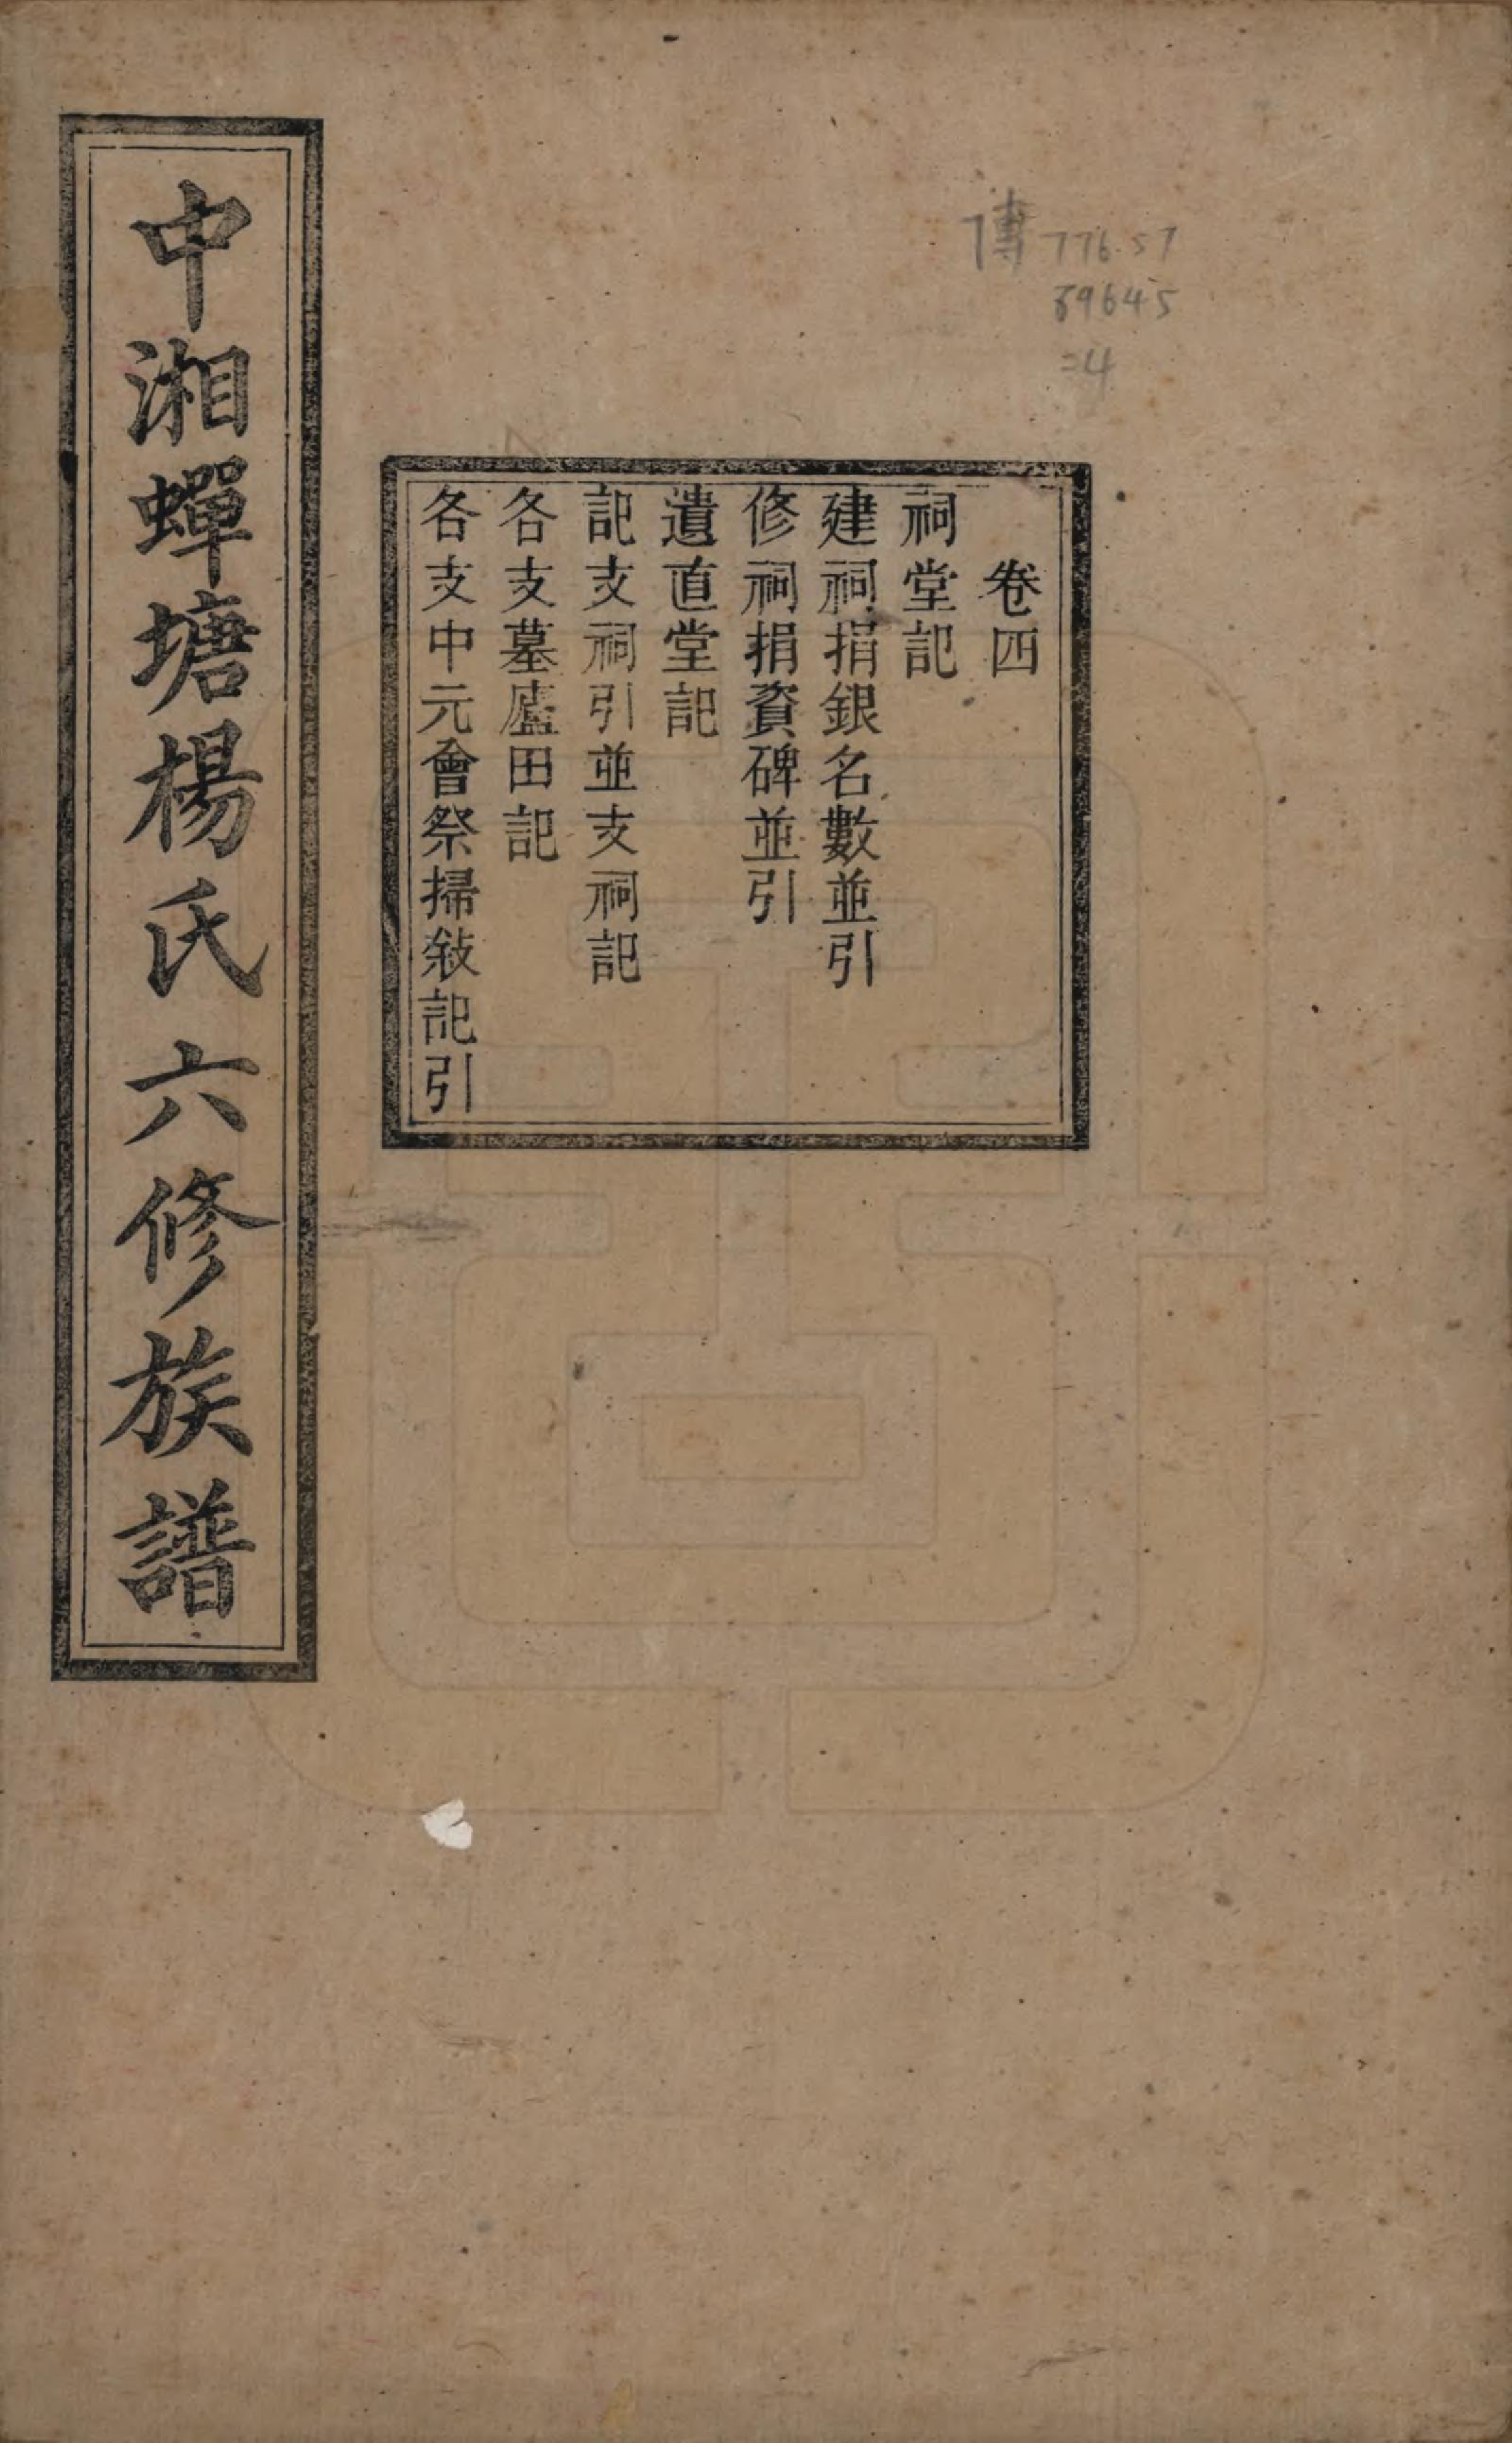 中湘蟬塘楊氏六修族譜
傳 776.57
89645
=4
卷四
祠堂記
建祠捐銀名數並引
修祠捐資碑並引
遺直堂記
記支祠引並支祠記
各支墓廬田記
各支中元會祭掃敍記引